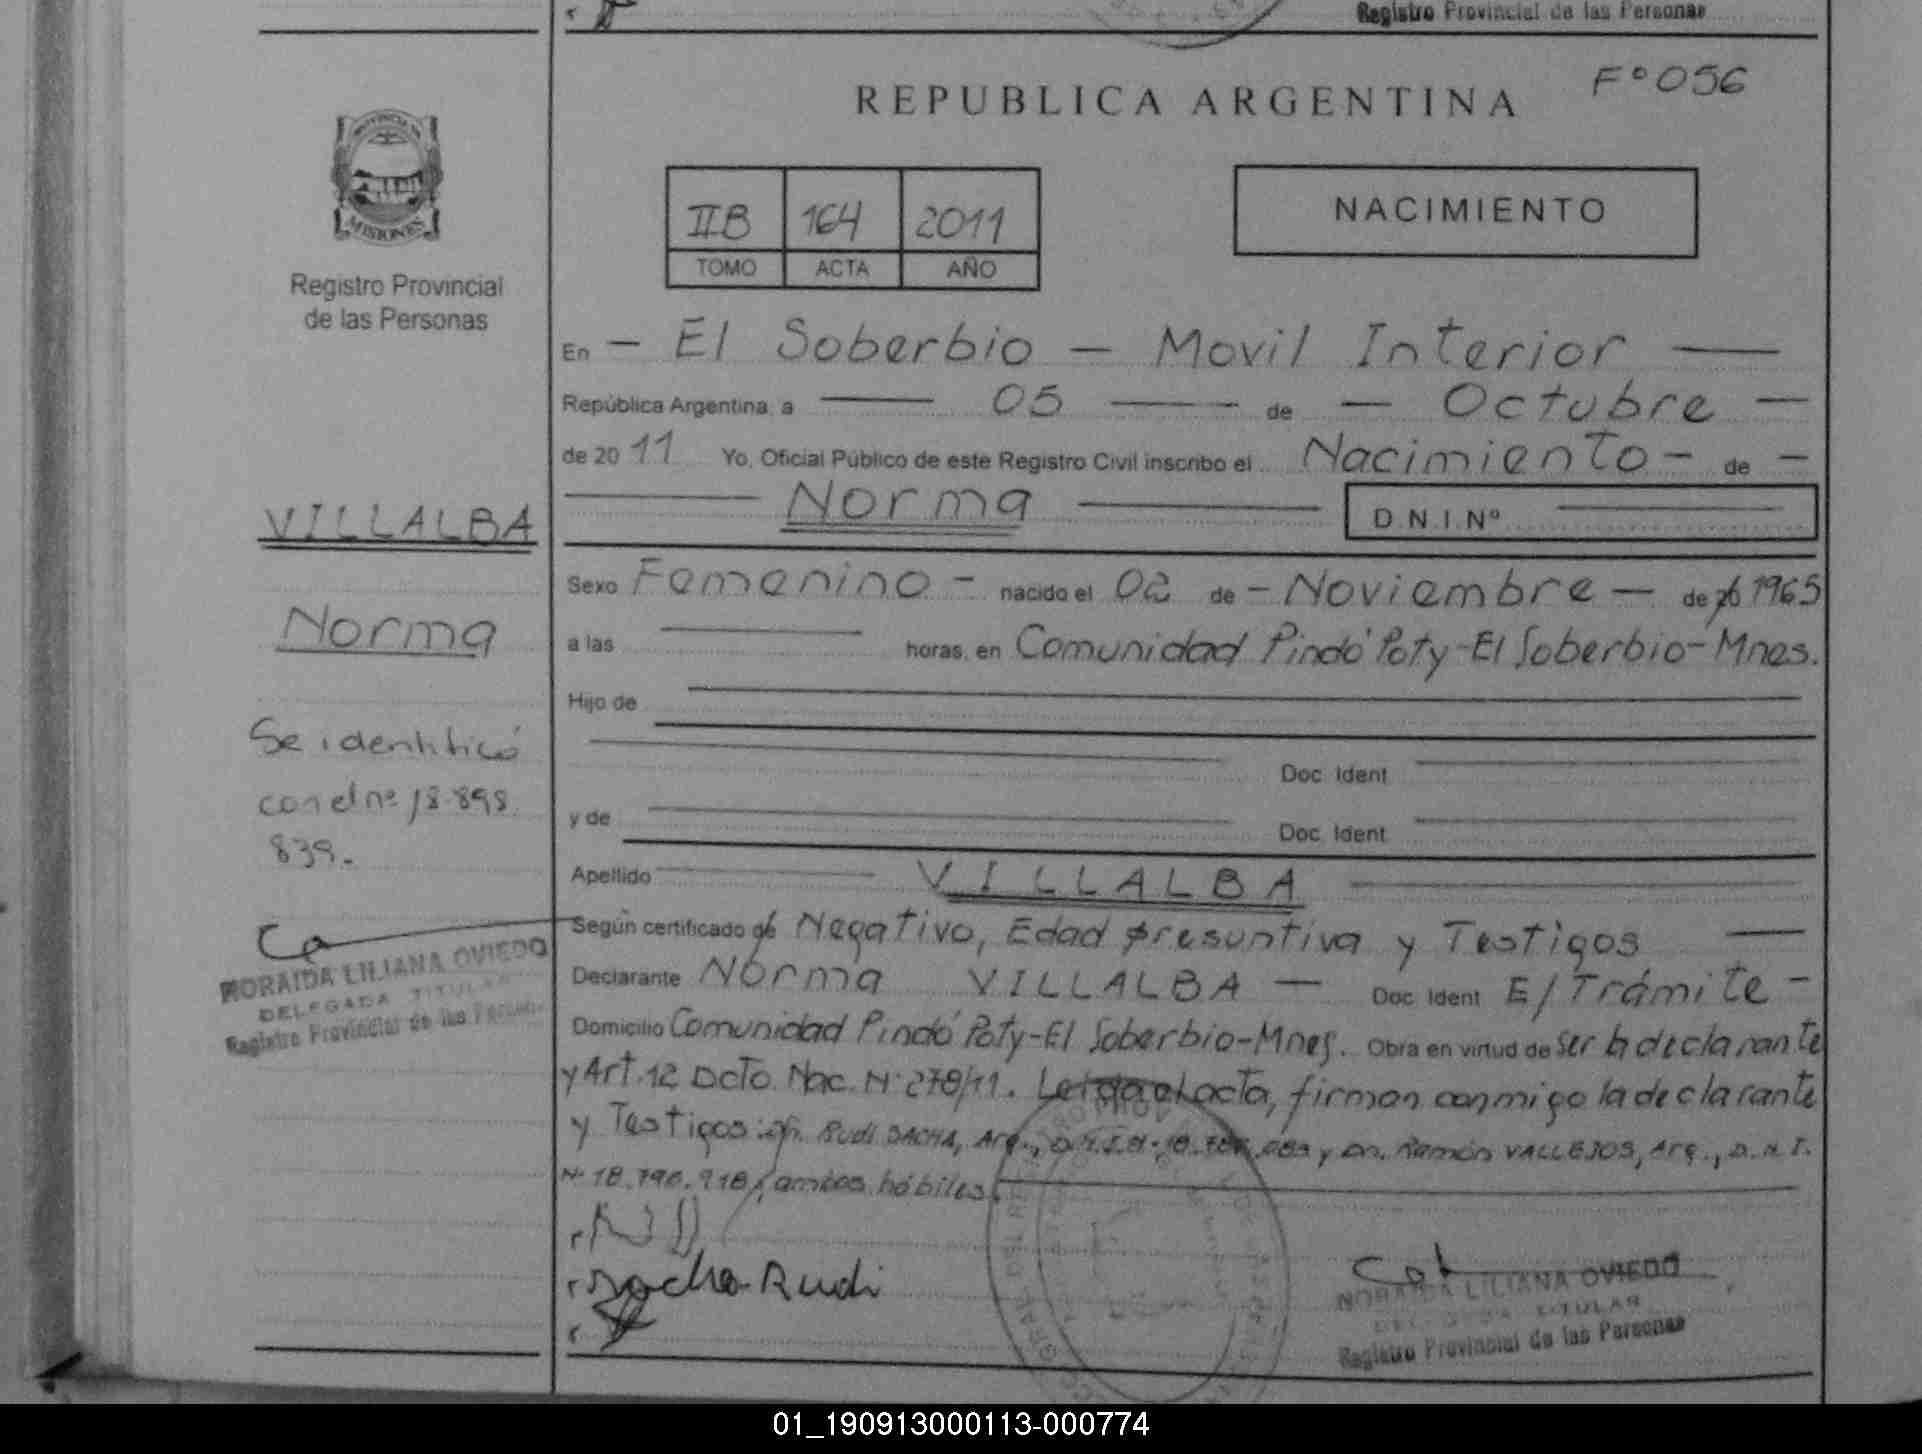 Registro Provincial de las Personas
REPUBLICA ARGENTINA
Fº 056
PROVINCIA DE
MISIONES
Registro Provincial
de las Personas
IIB 164 2011
TOMO ACTA AÑO
NACIMIENTO
En - El Soberbio - Movil Interior
República Argentina, a 05 de - Octubre -
de 2011 Yo, Oficial Público de este Registro Civil inscribo el Nacimiento - de -
Norma
D.N.I.Nº
VILLALBA
Norma
Se identificó
con el nº 18.898.
839.-
NORAIDA LILIANA OVIEDO
DELEGADA TITULAR
Registro Provincial de las Personas
Sexo Femenino - nacido el 02 de - Noviembre - de 20 1965
a las horas, en Comunidad Pindó Poty - El Soberbio - Mnes.
Hijo de
Doc. Ident.
y de
Doc. Ident.
Apellido VILLALBA
Según certificado de Negativo, Edad presuntiva y Testigos
Declarante Norma VILLALBA - Doc. Ident. E/Trámite -
Domicilio Comunidad Pindó Poty - El Soberbio - Mnes. Obra en virtud de ser la declarante
y Art. 12 Dcto. Nac. Nº 278/11. Leida el acta, firman conmigo la declarante
y Testigos: Rudi SACHA, Arg., D.N.I.Nº y Ramón VALLEJOS, Arg., D.N.I.
Nº 18.790.918, ambos hábiles.
Sacha Rudi
NORAIDA LILIANA OVIEDO
DELEGADA TITULAR
Registro Provincial de las Personas
01_190913000113-000774